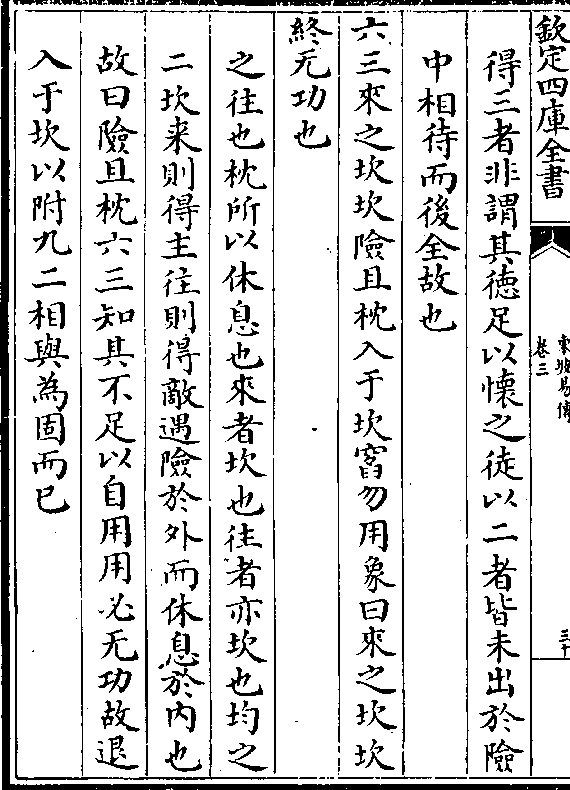 欽定四庫全書
東坡易傳
卷三
三十
得三者非謂其徳足以懐之徒以二者皆未出於險
中相待而後全故也
六三來之坎坎險且枕入于坎窞勿用象曰來之坎坎
終无功也
之往也枕所以休息也來者坎也往者亦坎也均之
二坎来則得主往則得敵遇險於外而休息於内也
故曰險且枕六三知其不足以自用用必无功故退
入于坎以附九二相與為固而已